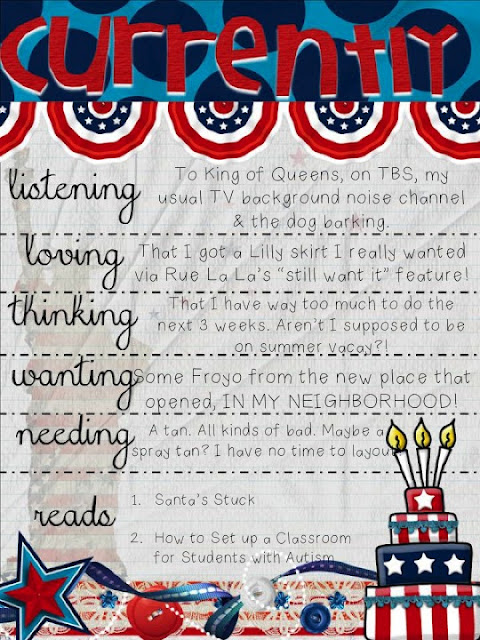 currently
listening
To King of Queens, on TBS, my
usual TV background noise channel
& the dog barking.
loving
That I got a Lilly skirt I really wanted
via Rue La La's "still want it" feature!
thinking
That I have way too much to do the
next 3 weeks. Aren't I supposed to be
on summer vacay?!
wanting
Some Froyo from the new place that
opened, IN MY NEIGHBORHOOD!
needing
A tan. All kinds of bad. Maybe a
spray tan? I have no time to layout
reads
1. Santa's Stuck
2. How to Set up a Classroom
for Students with Autism